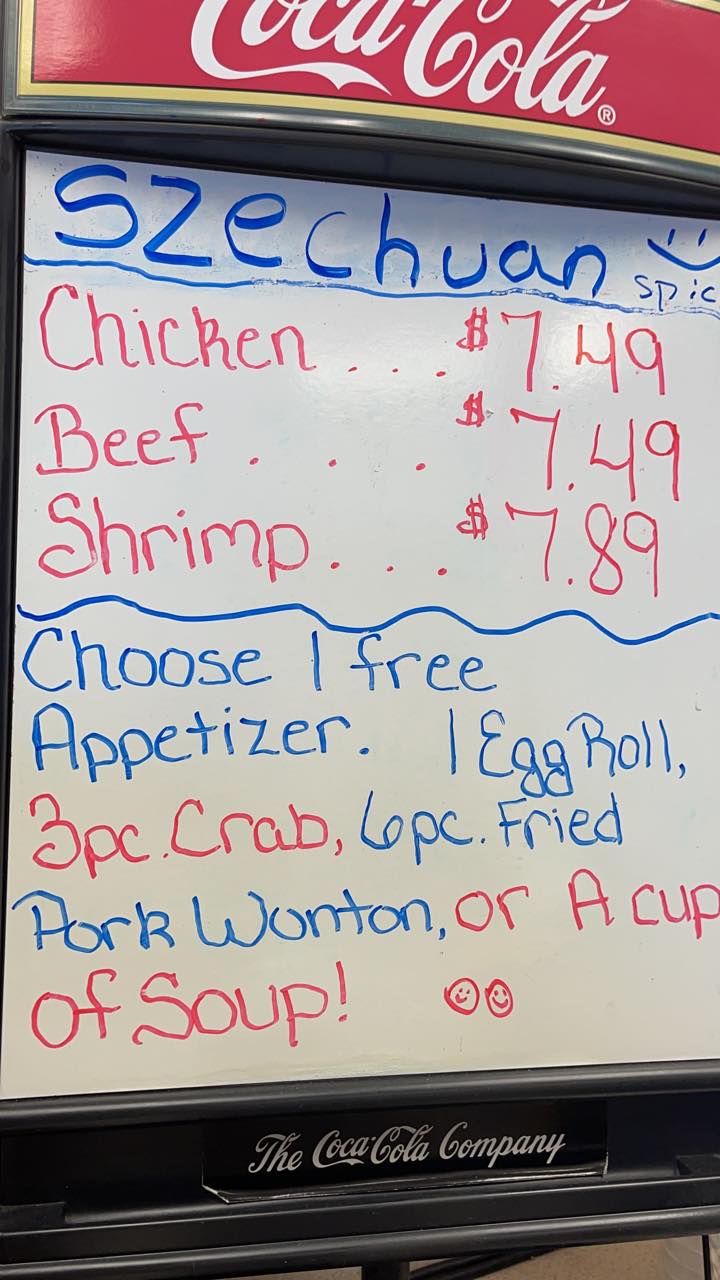 Coca-Cola®
Szechuan
spic
Chicken . . . $7.49
Beef . . . $7.49
Shrimp . . . $7.89
Choose 1 free
Appetizer. 1 Egg Roll,
3pc. Crab, 6pc. Fried
Pork Wonton, or A cup
of Soup!
The Coca-Cola Company